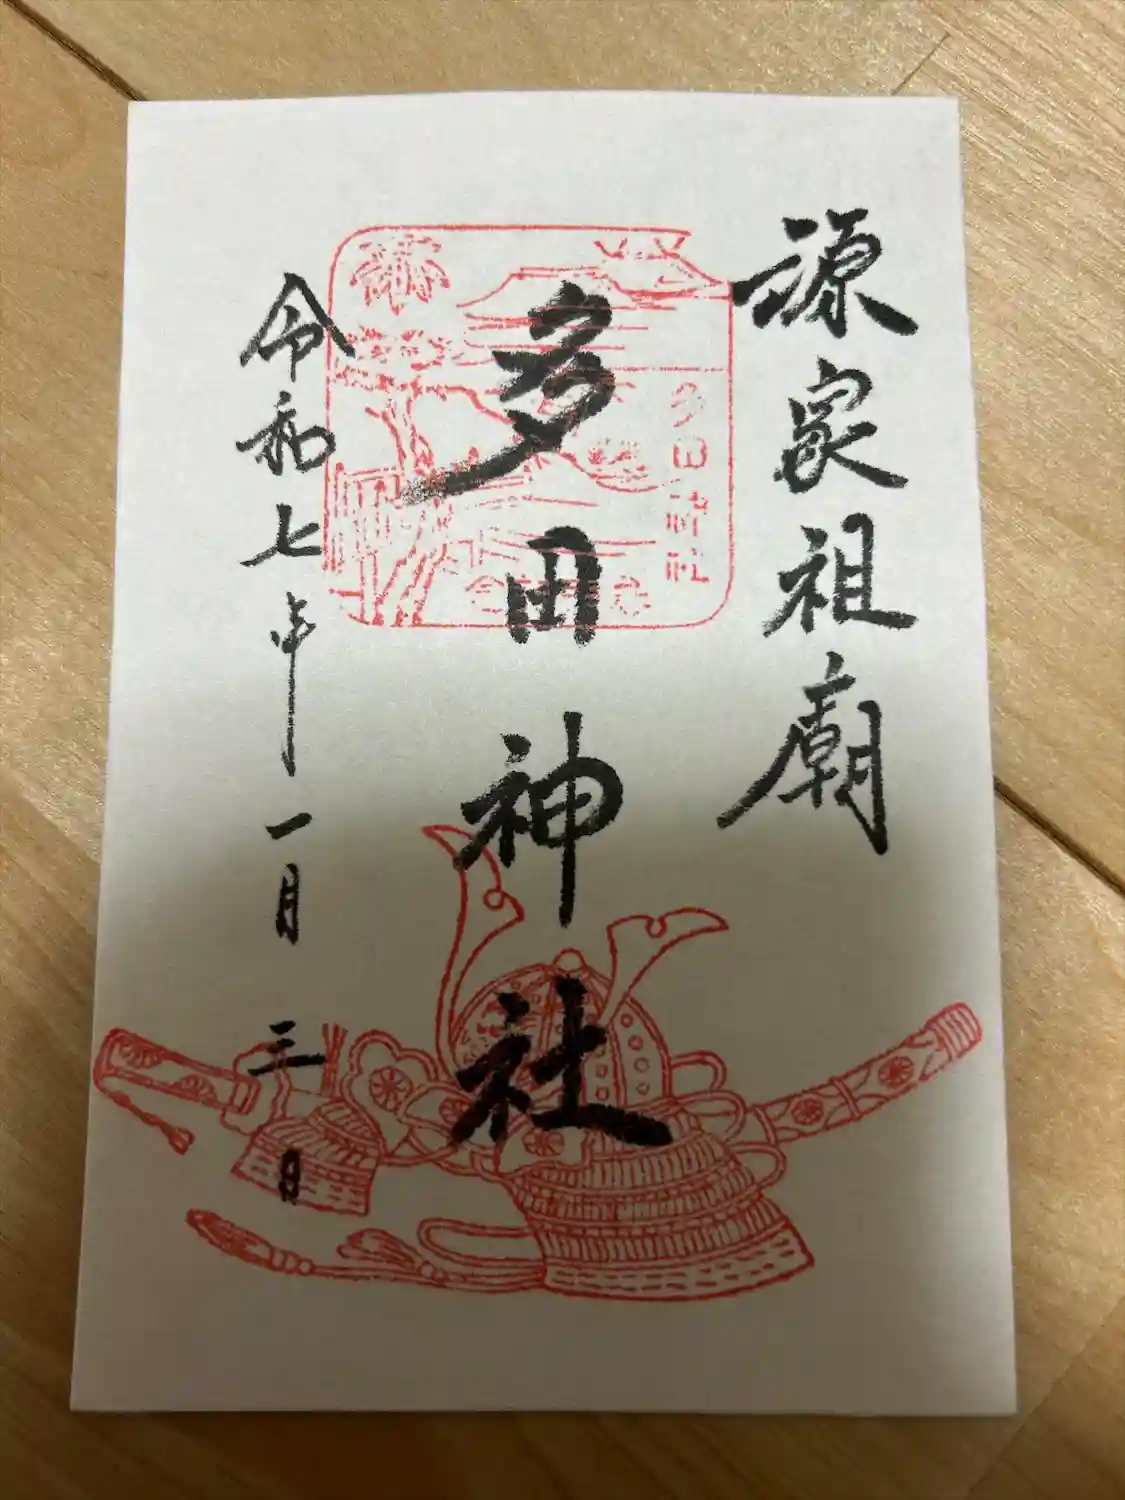 源家祖廟
多田神社
多田神社
令和七年一月三日